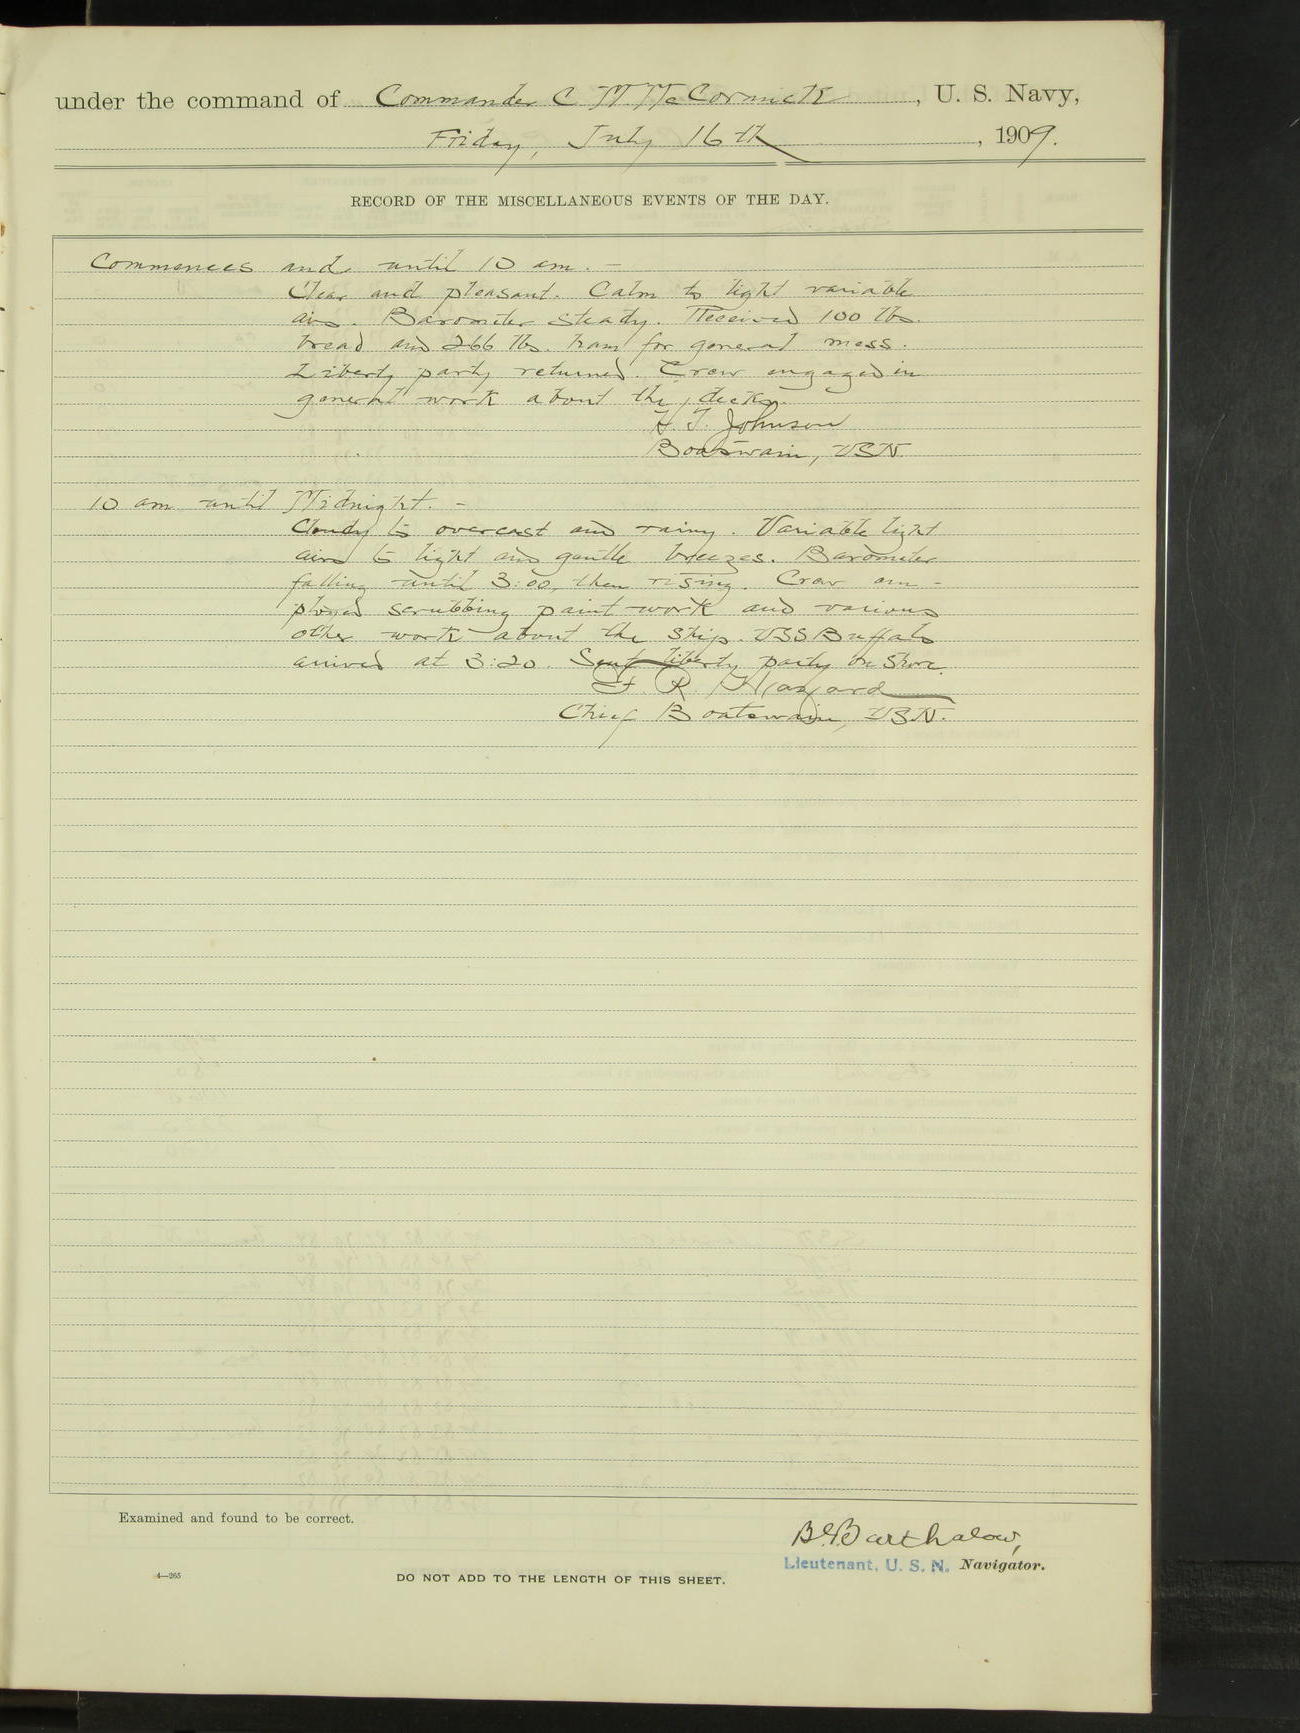 under the command of Commander C M. McCormick, U. S. Navy,
Friday, July 16th, 1909.
RECORD OF THE MISCELLANEOUS EVENTS OF THE DAY.
Commences and until 10 am. -
Clear and pleasant. Calm to light variable
airs. Barometer steady. Received 100 lbs.
bread and 266 lbs. ham for general mess.
Liberty party returned. Crew engaged in
general work about the decks.
H. T. Johnson
Boatswain, USN.
10 am until Midnight. -
Cloudy to overcast and rainy. Variable light
airs to light and gentle breezes. Barometer
falling until 3:00, then rising. Crew em-
ployed scrubbing paint-work and various
other work about the ship. USS Buffalo
arrived at 3:20. Sent liberty party on shore.
F. R. Hazard
Chief Boatswain, USN.
Examined and found to be correct.
Barthalow,
Lieutenant, U. S. N. Navigator.
4—265
DO NOT ADD TO THE LENGTH OF THIS SHEET.